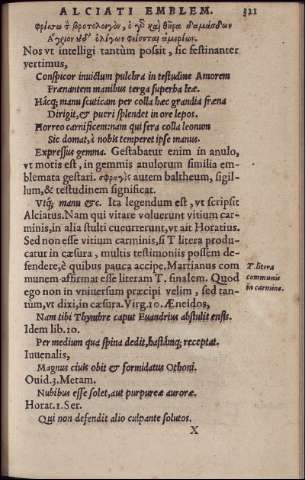 ALCIATI EMBLEM. 321
φρίσσω τ βροτολοιγὸν, ὁ γδ καὶ θῆρα δαμάσσδων
Ἄγριον ἐδ' ὀλίγων φείσεται ἀμερίων.
Nos vt intelligi tantùm possit, sic festinanter
vertimus,
Conspicor inuictum pulchra in testudine Amorem
Frænantem manibus terga superba leæ.
Hácq; manu scuticam per colla hæc grandia fræna
Dirigit, & pueri splendet in ore lepos.
Horreo carnificem: nam qui fera colla leonum
Sic domat, à nobis temperet ipse manus.
Expressius gemma. Gestabatur enim in anulo,
vt motis est, in gemmis anulorum similia em-
blemata gestari. autem baltheum, sigil-
lum, & testudinem significat.
Vtq; manu &c. Ita legendum est, vt scripsit
Alciatus. Nam qui vitare voluerunt vitium car-
minis, in alia stulti cucurrerunt, vt ait Horatius.
Sed non esse vitium carminis, si T litera produ-
catur in cæsura, multis testimoniis possem de-
fendere, è quibus pauca accipe. Martianus com
munem affirmat esse literam T. finalem. Quod
ego non in vniuersum præcipi velim, sed tan-
tùm, vt dixi, in cæsura. Virg. 10. Æneidos,
T litera
communis
in carmine.
Nam tibi Thymbre caput Euandrius abstulit ensis.
Idem lib. 10.
Per medium qua spina dedit, hastámq; receptat.
Iuuenalis,
Magnus ciuis obit & formidatus Othoni.
Ouid. 3. Metam.
Nubibus esse solet, aut purpureæ auroræ.
Horat. 1. Ser.
Qui non defendit alio culpante solutos.
X